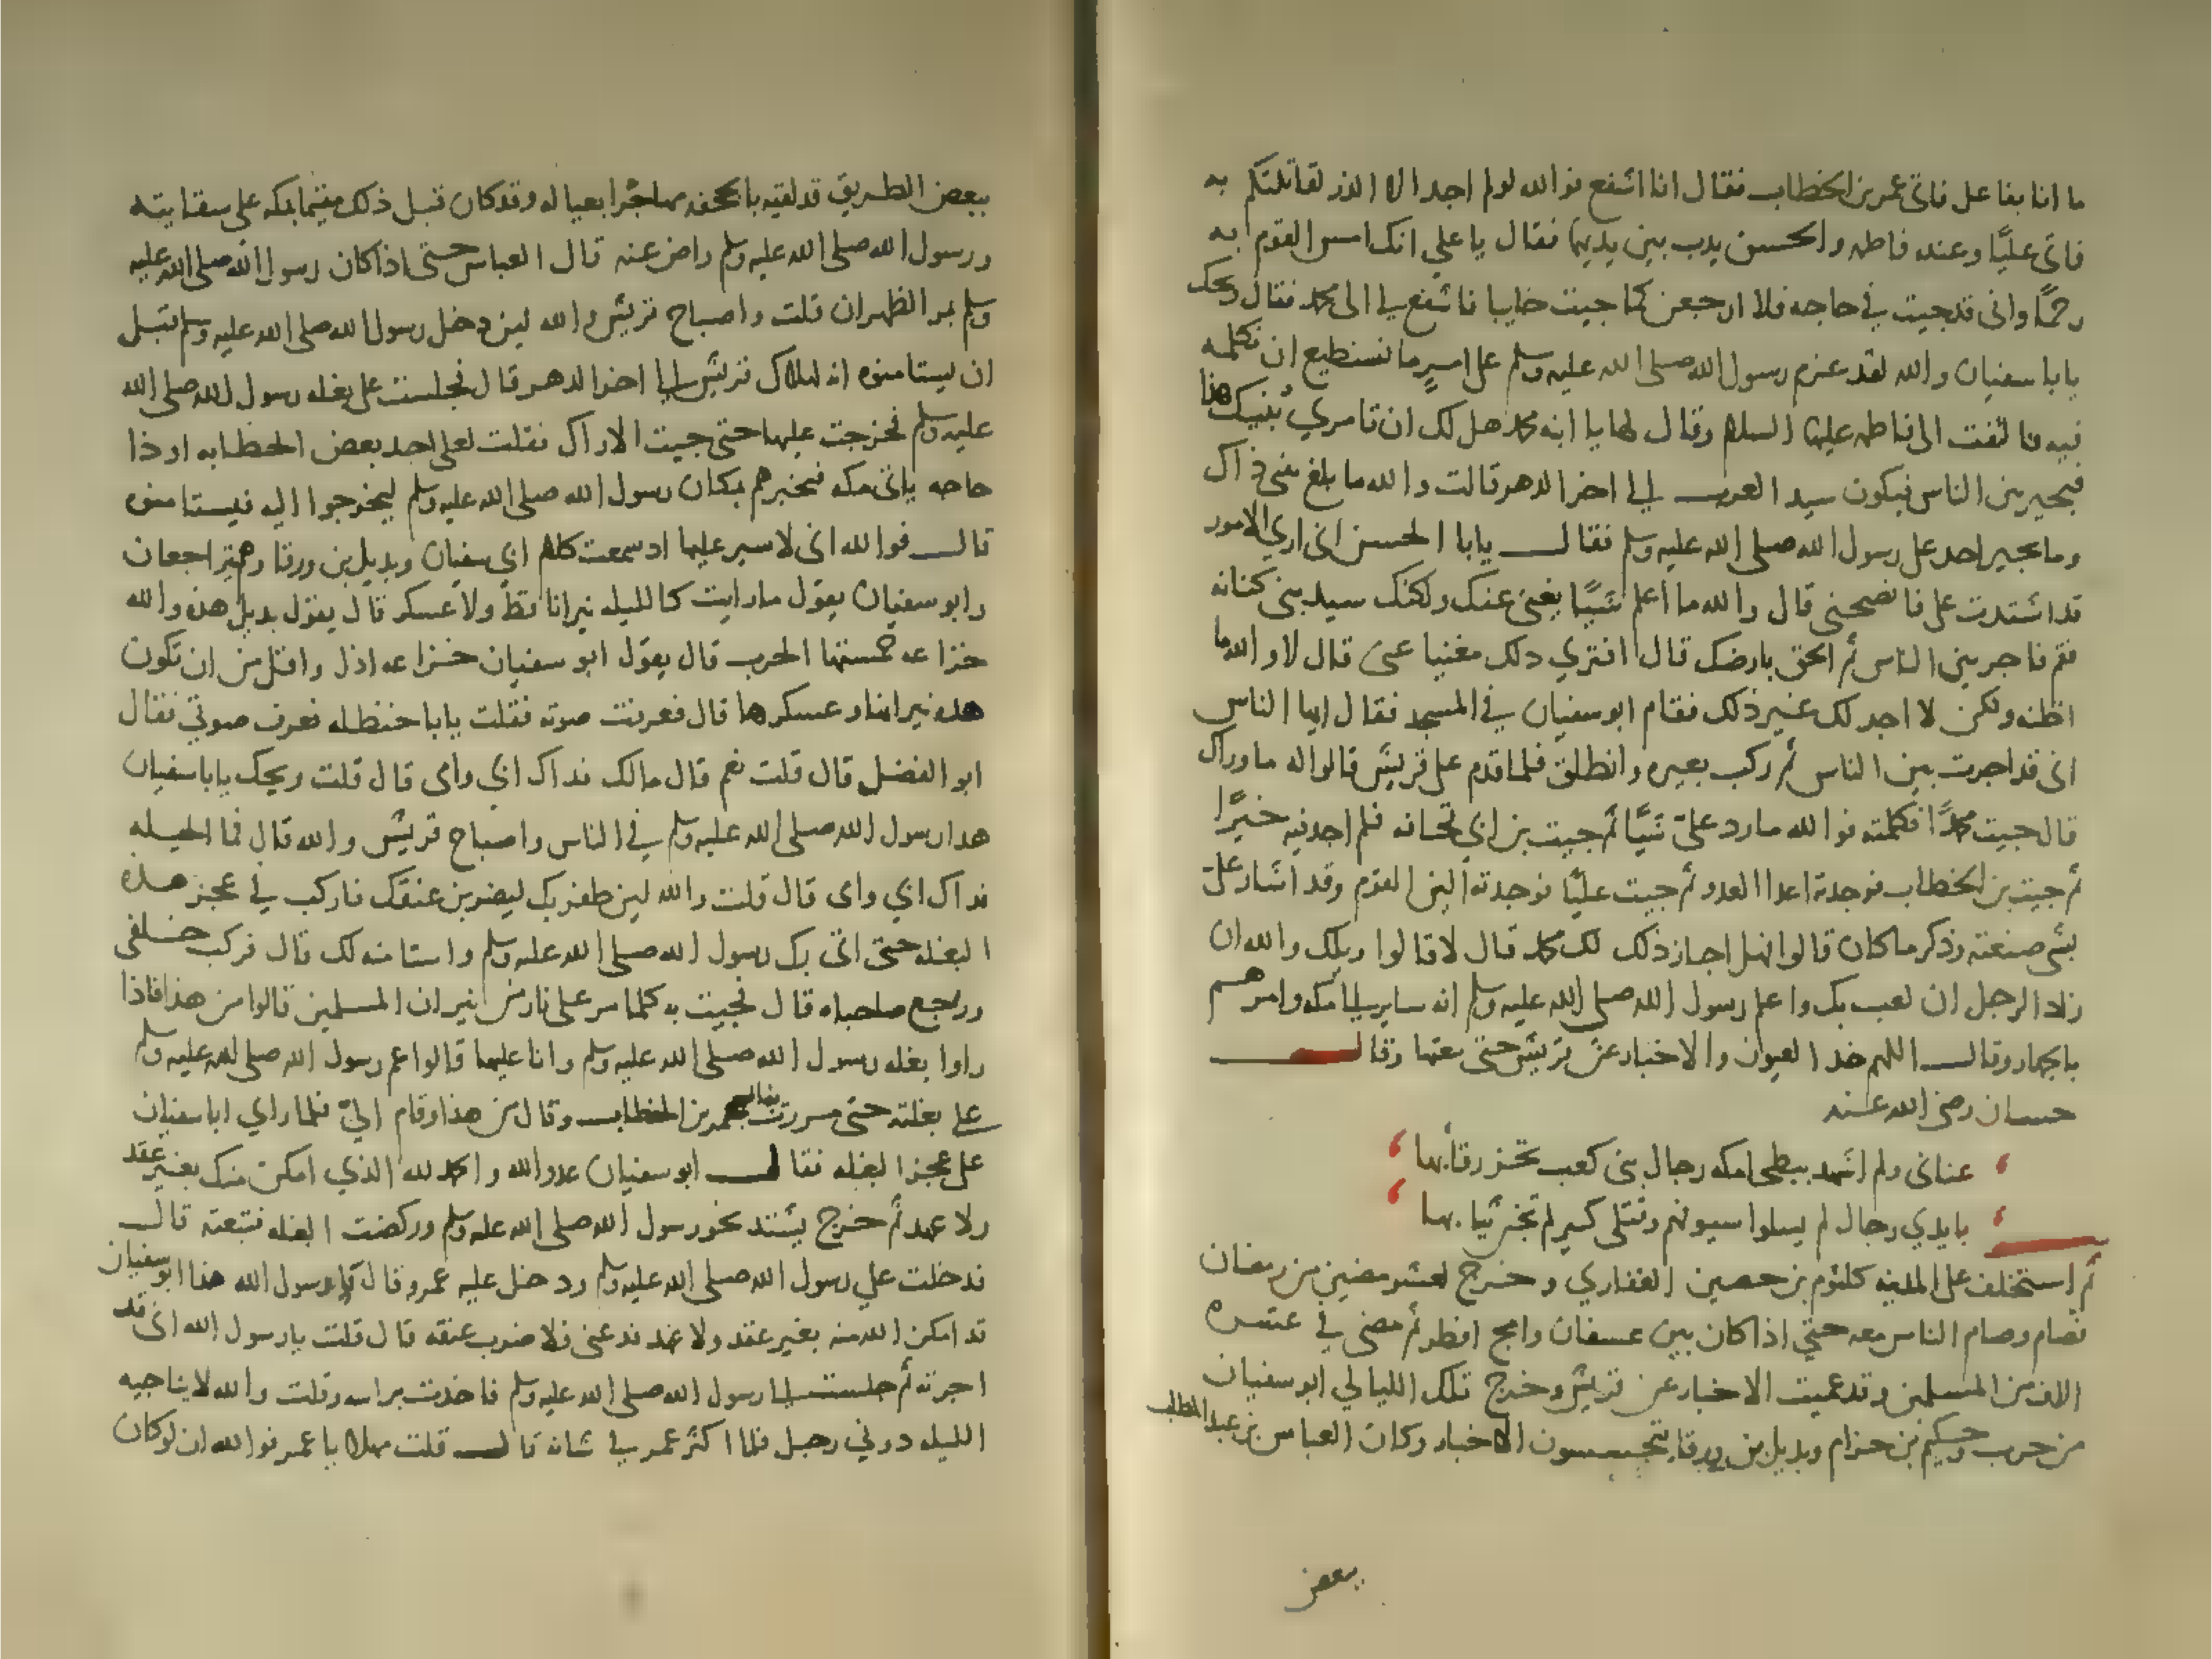 ما انا بفاعل فاتى عمر بن الخطاب فقال انا اشفع فوالله لو لم اجد الا الذر لقاتلتكم به
فاتى عليًا وعنده فاطمه والحسن يدب بين يديها فقال يا علي انك امس القوم به
رحمًا وانى قد جيت في حاجه فلا ارجعن كما جيت خايبا فاشفع لي الى محمد فقال ويحك
يابا سفيان والله لقد عزم رسول الله صلى الله عليه وسلم على امرٍ ما نستطيع ان نكلمه
فيه فالتفت الى فاطمه عليها السلام وقال لها يا ابنه محمد هل لك ان تامري بُنيك هذا
فيجير بين الناس فيكون سيد العرب الى اخر الدهر قالت والله ما بلغ بنى ذاك
وما يجير احد على رسول الله صلى الله عليه وسلم فقال يابا الحسن انى اري الامور
قد اشتدت على فانصحنى قال والله ما اعلم شيًا يغنى عنك ولكنك سيد بنى كنانه
فقم فاجر بين الناس ثم الحق بارضك قال افترى ذلك مغنيا عنى قال لا والله ما
اظنه ولكن لا اجد لك غير ذلك فقام ابو سفيان في المسجد فقال ايها الناس
انى قد اجرت بين الناس ثم ركب بعيره وانطلق فلما قدم على قريش قالوا له ما وراك
قال جيت محمدًا فكلمته فوالله ما رد علىّ شيًّا ثم جيت بن ابي قحافه فلم اجد فيه خيرًا
ثم جيت بن الخطاب فوجدته اعدا العدو ثم جيت عليًا فوجدته الين القوم وقد اشار علىّ
بشي صنعته وذكر ما كان قالوا فهل اجاز ذلك لك محمد قال لا قالوا ويلك والله ان
زاد الرجل ان لعب بك واعلم رسول الله صلى الله عليه وسلم انه ساير الى مكه وامرهم
بالجهاز وقال اللهم خذ العيون والاخبار عن قريش حتى بغتها وقال
حسان رضى الله عنه
عنانى ولم اشهد ببطحا مكه رجال بنى كعب تحز رقابها
بايدي رجال لم يسلوا سيوفهم وقتلى كثير لم تجن ثيابها
ثم استخلف على المدينه كلثوم بن حصين الغفاري وخرج لعشر مضين من رمضان
فصام وصام الناس معه حتى اذا كان بين عسفان وامج افطر ثم مضى في عشره
الاف من المسلمين وقد عميت الاخبار عن قريش وخرج تلك الليالي ابو سفيان
بن حرب وحكيم بن حزام وبديل بن ورقا يتجسسون الاخبار وكان العباس بن عبد المطلب
ببعض
ببعض الطريق قد لقيه بالجحفه مهاجرا بعياله وقد كان قبل ذلك مقيما بمكه على سقايته
ورسول الله صلى الله عليه وسلم راض عنه قال العباس حتى اذا كان رسول الله صلى الله عليه
وسلم بمر الظهران قلت واصباح قريش والله لين دخل رسول الله صلى الله عليه وسلم قبل
ان يستامنوه انه لهلاك قريش الى اخر الدهر قال فجلست على بغله رسول الله صلى الله
عليه وسلم فخرجت عليها حتى جيت الاراك فقلت لعلى اجد بعض الحطابه او ذا
حاجه ياتى مكه فيخبرهم بمكان رسول الله صلى الله عليه وسلم ليخرجوا اليه فيستامنوه
قال فوالله انى لاسير عليها اذ سمعت كلام ابي سفيان وبديل بن ورقا وهما يتراجعان
وابو سفيان يقول ما رايت كالليله نيرانا قط ولا عسكر قال يقول بديل هذه والله
خزاعه حمستها الحرب قال يقول ابو سفيان خزاعه اذل واقل من ان تكون
هذه نيرانها وعسكرها قال فعرفت صوته فقلت يابا حنظله فعرف صوتي فقال
ابو الفضل قال قلت نعم قال مالك فداك ابي وامى قال قلت ويحك يابا سفيان
هذا رسول الله صلى الله عليه وسلم في الناس واصباح قريش والله قال فما الحيله
فداك ابي وامى قال قلت والله لين ظفر بك ليضربن عنقك فاركب في عجز هذه
البغله حتى اتى بك رسول الله صلى الله عليه وسلم واستامنه لك قال فركب خلفى
ورجع صاحباه قال فجيت به كلما مر على نار من نيران المسلمين قالوا من هذا فاذا
راوا بغله رسول الله صلى الله عليه وسلم وانا عليها قالوا عم رسول الله صلى الله عليه وسلم
على بغلته حتى مررت بنار عمر بن الخطاب وقال من هذا وقام اليّ فلما راي ابا سفيان
على عجز البغله فقال ابو سفيان عدو الله والحمد لله الذي امكن منك بغير عقد
ولا عهد ثم خرج يشتد نحو رسول الله صلى الله عليه وسلم وركضت البغله فتبعته قال
فدخلت علي رسول الله صلى الله عليه وسلم ودخل عليه عمر وقال يا رسول الله هذا ابو سفيان
قد امكن الله منه بغير عقد ولا عهد فدعنى فلاضرب عنقه قال قلت يا رسول الله انى قد
اجرته ثم جلست الى رسول الله صلى الله عليه وسلم فاخذت براسه وقلت والله لا يناجيه
الليله دوني رجل فلما اكثر عمر في شانه قال قلت مهلا يا عمر فوالله ان لو كان